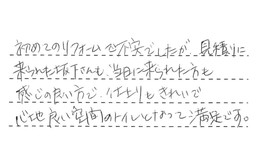 初めてのリフォームで不安でしたが、見積りに
来られた坂下さんも、当日に来られた方も
感じの良い方で、仕上りもきれいで
心地良い空間のトイレとなって満足です。